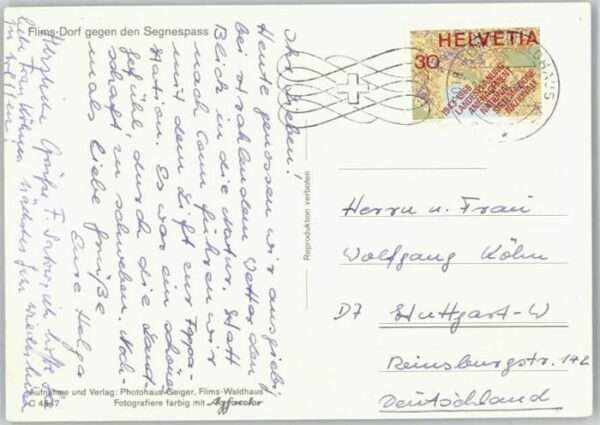 Flims-Dorf gegen den Segnespass
Ihr Lieben!
Heute genossen wir ausgiebig
bei strahlendem Wetter den
Blick in die Natur. Statt
nach Conn fuhren wir
mit dem Lift zur
Station. Es war ein schönes
Gefühl, durch die Land-
schaft zu schweben. Noch-
mals liebe Grüße
Eure Helga
Herzliche Grüße
nächstes Jahr wieder
Aufnahme und Verlag: Photohaus Geiger, Flims-Waldhaus
Fotografiere farbig mit Agfacolor
Reproduktion verboten
HELVETIA
30
Herrn u. Frau
Wolfgang Köhn
D7 Stuttgart-W
Reinsburgstr. 172
Deutschland